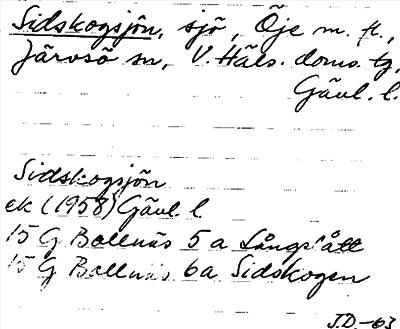 Sidskogsjön, sjö, Öje m. fl.,
Järvsö sn, V. Häls. doms. tg,
Gävl. l.
Sidskogsjön
ek (1958) Gävl. l
15 G Bollnäs 5 a Långs ått
15 G Bollnäs 6a Sidskogen
J.D.-63